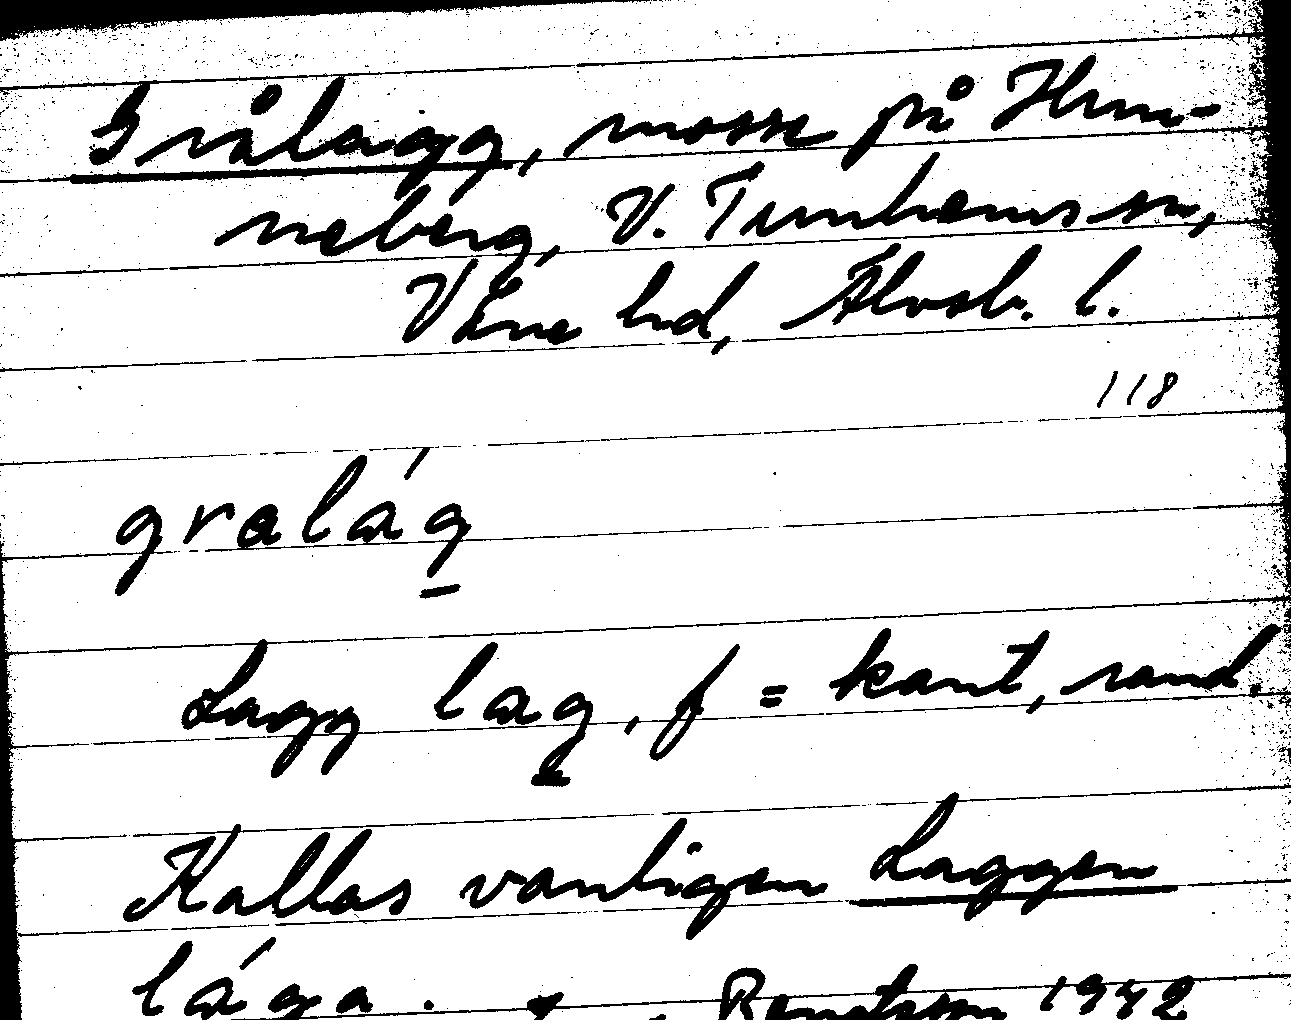 Grålagg, mosse på Hun-
neberg, V. Tunhems sn,
Väne hd, Älvsb. l.
118
gralág
Lagg lag, f = kant, rand.
Kallas vanligen Laggen
lága. Bengtsson 1942